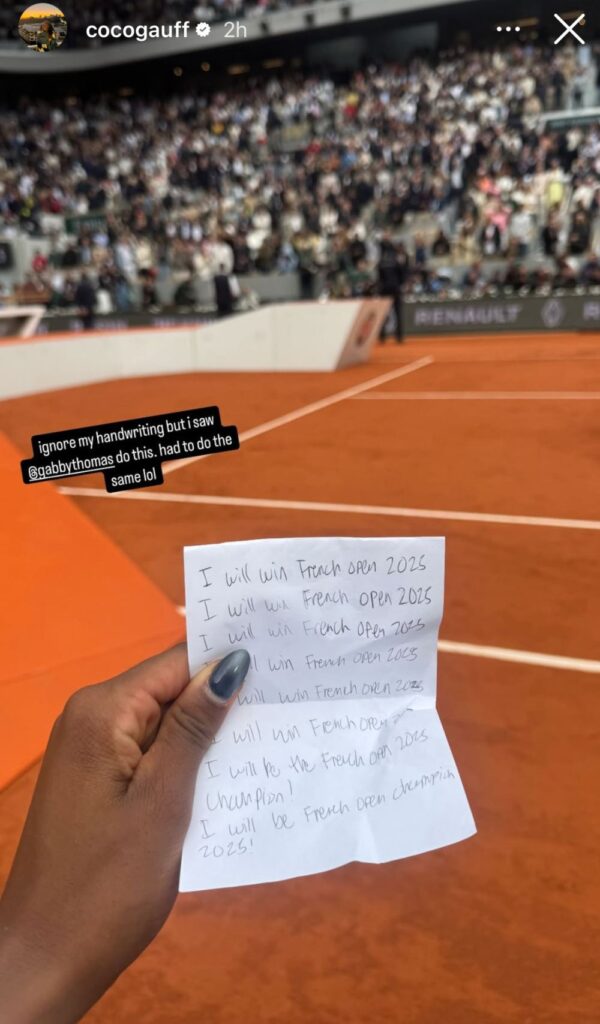 cocogauff 2h
ignore my handwriting but i saw
@gabbythomas do this. had to do the
same lol
RENAULT
I will win French open 2025
I will win French open 2025
I will win French open 2025
will win French open 2025
will win French open 2025
I will win French open
I will be the French open 2025
Champion!
I will be French open champion
2025!